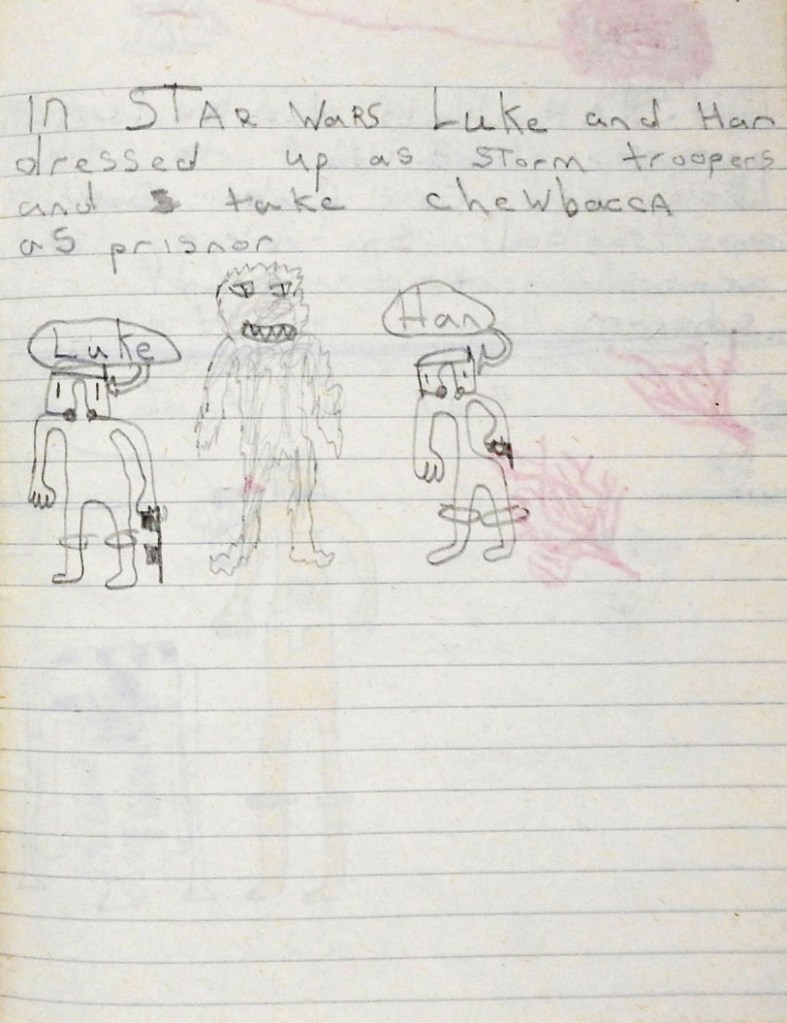 In STAR WARS Luke and Han
dressed up as STorm troopers
and take chewbaccA
as prisnor
Luke
Han